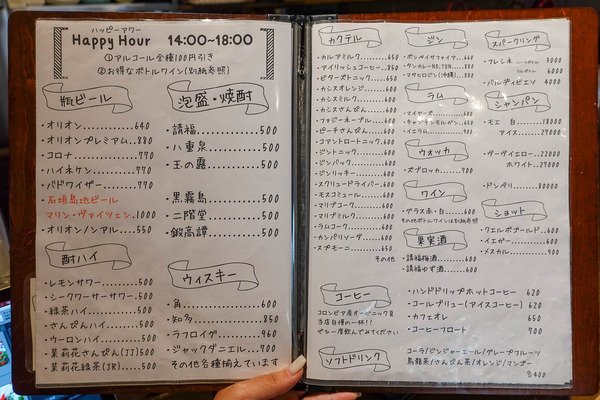 ハッピーアワー
Happy Hour 14:00~18:00
①アルコール全種100円引き
②お得なボトルワイン(別紙参照)
瓶ビール
・オリオン............640
・オリオンプレミアム....880
・コロナ.............770
・ハイネケン..........770
・バドワイザー.........770
・石垣島地ビール
マリン・ヴァイツェン.1000
・オリオンノンアル....550
酎ハイ
・レモンサワー........500
・シークワーサーサワー.500
・緑茶ハイ...........500
・さんぴんハイ........500
・ウーロンハイ........500
・茉莉花さんぴん(JJ)...500
・茉莉花緑茶(JR).....500
泡盛・焼酎
・請福............500
・八重泉..........500
・玉の露..........500
・黒霧島..........500
・二階堂..........500
・鍛高譚..........500
ウィスキー
・角..............600
・知多............850
・ラフロイグ.......960
・ジャックダニエル...700
その他各種揃えています
カクテル
・カルアミルク.......650
・アイリッシュコーヒー..850
・ビターズトニック....600
・カシスオレンジ......600
・カシスミルク.......600
・カシスさんぴん.....600
・ファジーネーブル....600
・ピーチさんぴん.....600
・コアントロートニック..600
・ジントニック.......600
・ジンバック........600
・ジンリッキー.......600
・スクリュードライバー..600
・モスコミュール.....600
・マリブコーク.......600
・マリブミルク.......600
・ラムコーク........600
・カンパリソーダ.....600
・スプモーニ........650
その他
コーヒー
コロンビア産オーガニック豆
当店自慢の一杯!!
ぜひ一度飲んでみてください
・ハンドドリップホットコーヒー 620
・コールブリュー(アイスコーヒー) 620
・カフェオレ 650
・コーヒーフロート 700
ソフトドリンク
コーラ/ジンジャーエール/グレープフルーツ
烏龍茶/さんぴん茶/オレンジ/マンゴー
各400
ジン
・ボンベイサファイア..660
・タンカレーNO.TEN...880
・マサヒロジン(沖縄)..880
ラム
・マイヤーズ........600
・キャプテンモルガン..650
・イエラム..........900
ウォッカ
・ズブロッカ........700
ワイン
・グラス赤・白......600
その他ボトルワインは別紙参照
果実酒
・請福梅酒.........600
・請福ゆず酒.......600
スパークリング
・フレシネ 3000
6000
・バルディビエソ 4000
シャンパン
・モエ 白 18000
アイス 27000
・ヴーヴイエロー 22000
ホワイト 27000
・ドンペリ 80000
ショット
・クエルボゴールド..600
・イエガー.........600
・メスカル.........900